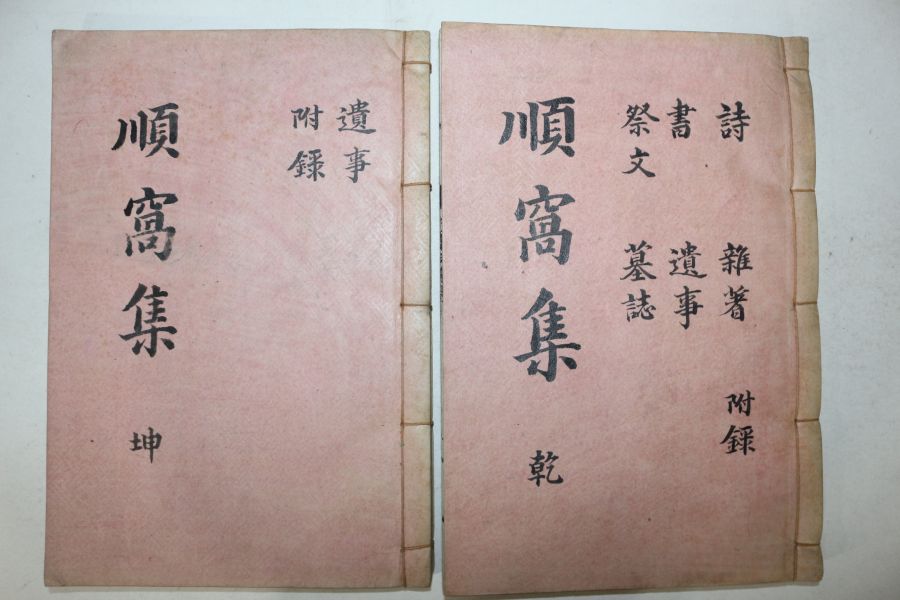 順窩集 乾
詩 雜著 附錄
書 遺事
祭文 墓誌
順窩集 坤
遺事
附錄